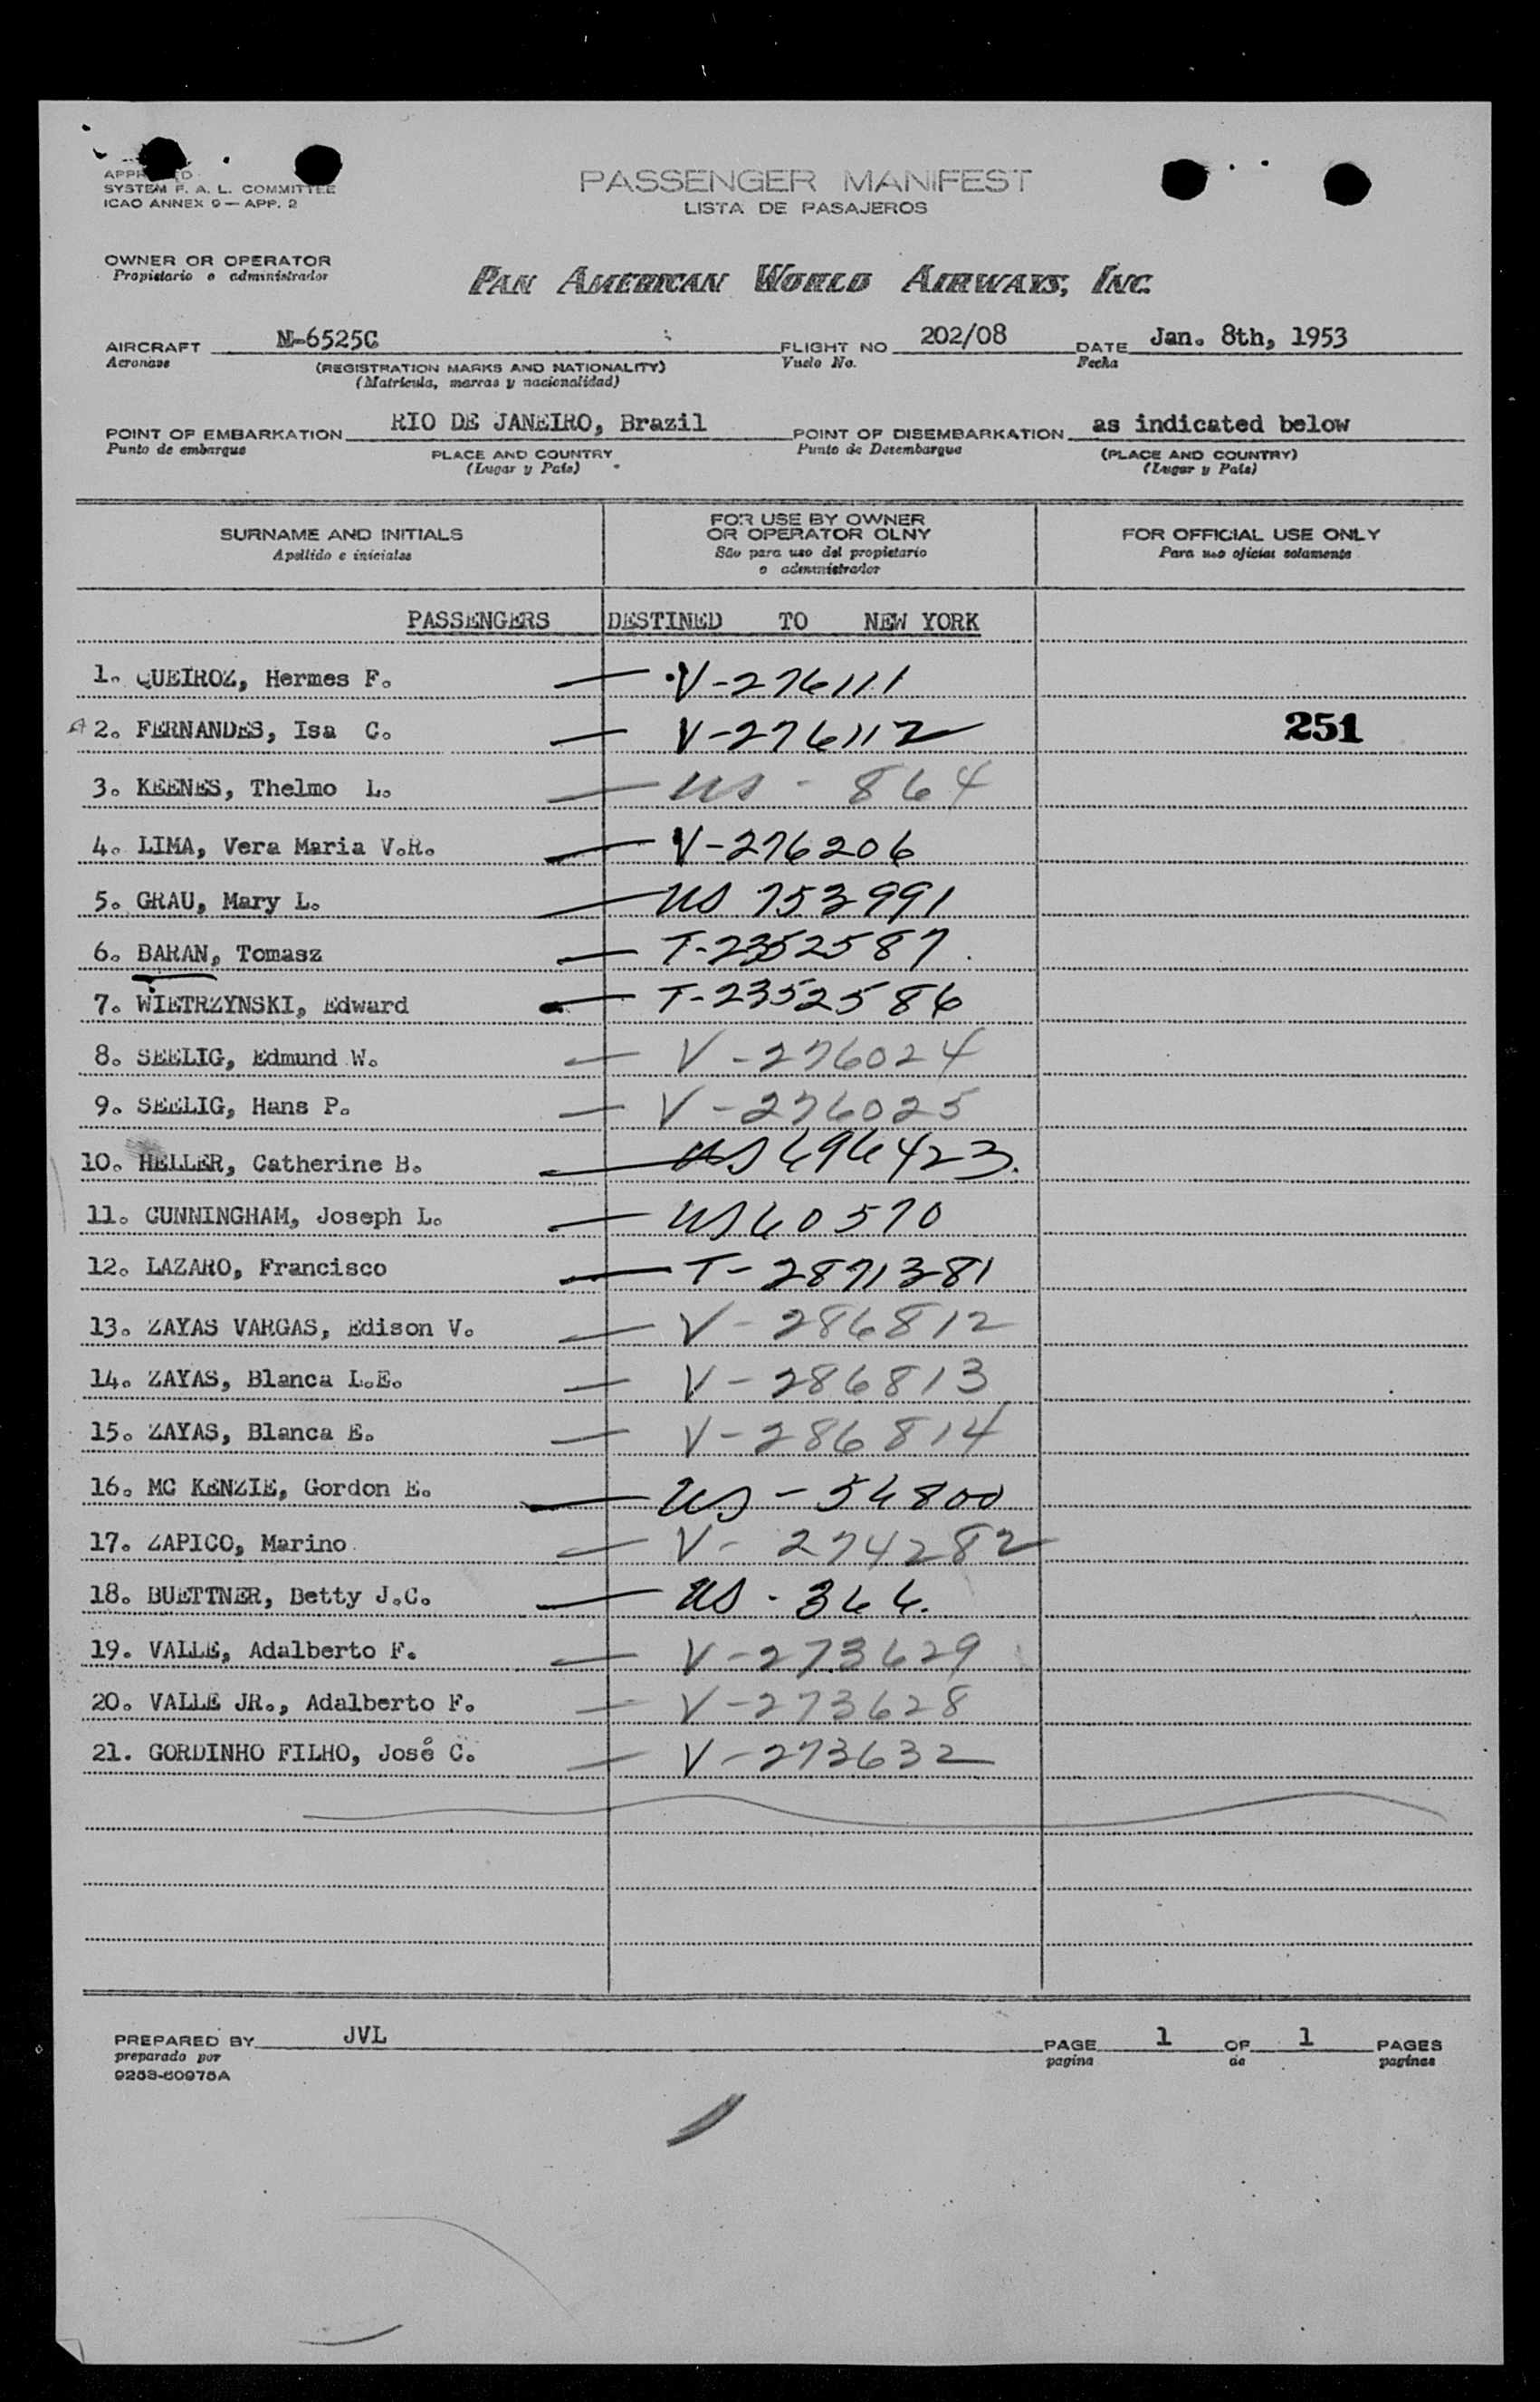 SYSTEM F. A. L. COMMITTEE
ICAO ANNEX 9 — APP. 2
PASSENGER MANIFEST
LISTA DE PASAJEROS
OWNER OR OPERATOR
Propietario o administrador
PAN AMERICAN WORLD AIRWAYS, INC.
AIRCRAFT N-6525C FLIGHT NO 202/08 DATE Jan. 8th, 1953
Aeronave (REGISTRATION MARKS AND NATIONALITY) Vuelo No. Fecha
(Matrícula, marcas y nacionalidad)
POINT OF EMBARKATION RIO DE JANEIRO, Brazil POINT OF DISEMBARKATION as indicated below
Punto de embarque PLACE AND COUNTRY Punto de Desembarque (PLACE AND COUNTRY)
(Lugar y País) (Lugar y País)
SURNAME AND INITIALS FOR USE BY OWNER FOR OFFICIAL USE ONLY
OR OPERATOR OLNY
Apellido e iniciales São para uso del propietario Para uso oficial solamente
o administrador
PASSENGERS DESTINED TO NEW YORK
1. QUEIROZ, Hermes F. — V-276111
2. FERNANDES, Isa C. — V-276112 251
3. KEENES, Thelmo L. — US - 864
4. LIMA, Vera Maria V.R. — V-276206
5. GRAU, Mary L. — US 753991
6. BARAN, Tomasz — T-2352587
7. WIETRZYNSKI, Edward — T-2352586
8. SEELIG, Edmund W. — V-276024
9. SEELIG, Hans P. — V-276025
10. HELLER, Catherine B. — US 696423
11. CUNNINGHAM, Joseph L. — US 60570
12. LAZARO, Francisco — T-2871381
13. ZAYAS VARGAS, Edison V. — V-286812
14. ZAYAS, Blanca L.E. — V-286813
15. ZAYAS, Blanca E. — V-286814
16. MC KENZIE, Gordon E. — US - 56800
17. ZAPICO, Marino — V- 274282
18. BUETTNER, Betty J.C. — US - 366.
19. VALLE, Adalberto F. — V-273629
20. VALLE JR., Adalberto F. — V-273628
21. GORDINHO FILHO, José C. — V-273632
PREPARED BY JVL PAGE 1 OF 1 PAGES
preparado por pagina de paginas
9253-60975A